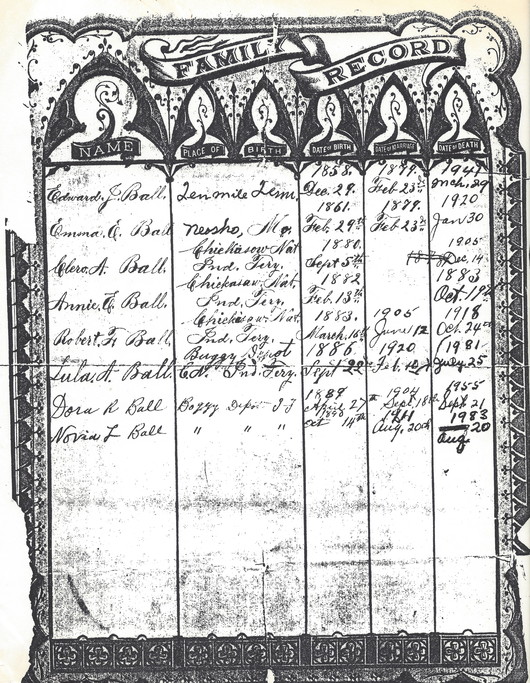 FAMILY RECORD
NAME PLACE OF BIRTH DATE OF BIRTH DATE OF MARRIAGE DATE OF DEATH
1858. 1879. 1947
Edward, J. Ball. Ten mile Tenn. Dec. 29. Feb 23rd Mch. 29
1861. 1879. 1920
Emma, C. Ball Neosho, Mo. Feb. 29th Feb 23rd Jan 30
Chickasaw Nat 1880. 1905
Clera A. Ball. Ind, Tery. Sept 5th Dec. 14
Chickasaw Nat, 1882 1883
Annie, E. Ball. Ind, Tery, Feb. 13th Oct. 19th
Chickasaw Nat, 1883. 1905 1918
Robert, F. Ball Ind, Tery. March, 16th June 12 Oct. 24th
Boggy Depot 1886 1920 1981
Lula, A. Ball Ind. Tery. Sept 22 Feb. July 25
1889 1904 1955
Dora R Ball Boggy Depot I T April 27th Sept. 18th Sept 21
1893 1911 1983
Novia L Ball " " " Oct 14th Aug. 20th Aug. 20